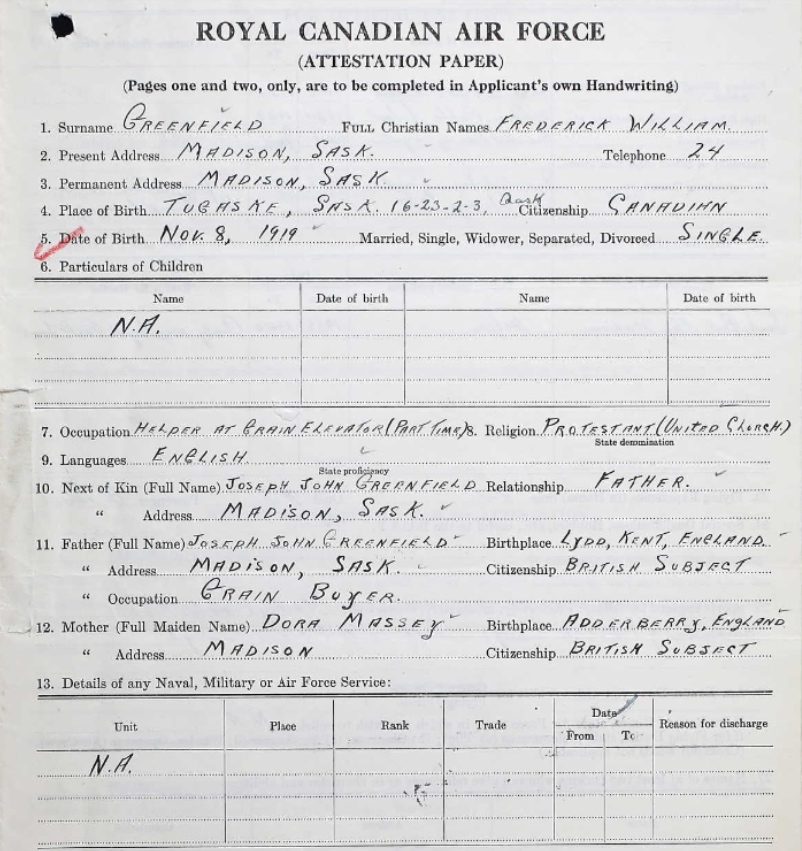 ROYAL CANADIAN AIR FORCE
(ATTESTATION PAPER)
(Pages one and two, only, are to be completed in Applicant's own Handwriting)
1. Surname GREENFIELD FULL Christian Names FREDERICK WILLIAM.
2. Present Address MADISON, SASK. Telephone 24
3. Permanent Address MADISON, SASK
4. Place of Birth TUGASKE, SASK. 16-23-2-3, Sask Citizenship CANADIAN
5. Date of Birth NOV. 8, 1919 Married, Single, Widower, Separated, Divorced SINGLE.
6. Particulars of Children
Name Date of birth Name Date of birth
N.A.
7. Occupation HELPER AT GRAIN ELEVATOR (PART TIME) 8. Religion PROTESTANT (UNITED CHURCH.)
State denomination
9. Languages ENGLISH
State proficiency
10. Next of Kin (Full Name) JOSEPH JOHN GREENFIELD Relationship FATHER.
" Address MADISON, SASK.
11. Father (Full Name) JOSEPH JOHN GREENFIELD Birthplace LYDD, KENT, ENGLAND
" Address MADISON, SASK. Citizenship BRITISH SUBJECT
" Occupation GRAIN BUYER.
12. Mother (Full Maiden Name) DORA MASSEY Birthplace ADDERBERRY, ENGLAND
" Address MADISON Citizenship BRITISH SUBJECT
13. Details of any Naval, Military or Air Force Service:
Unit Place Rank Trade Date Reason for discharge
From To
N.A.